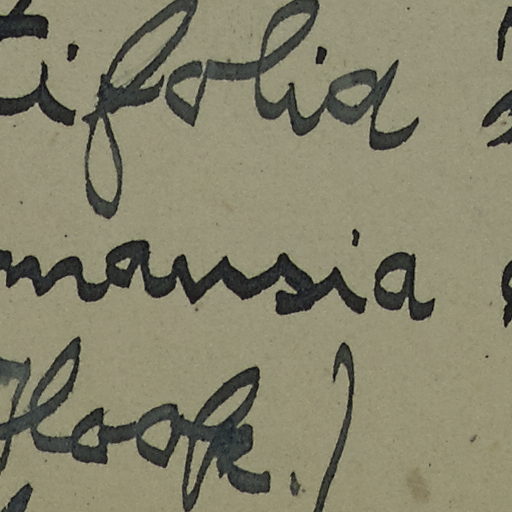 tifolia
mansia
Hook.)